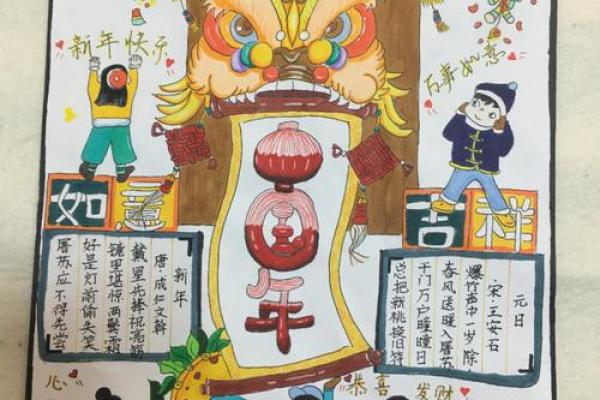 新年快乐
万事如意
中国年
如意
吉祥
新年
唐·成仁文幹
戴星先捧祝尧觞
镜里堪惊两鬓霜
好是灯前偷失笑
屠苏应不得先尝
元日
宋·王安石
爆竹声中一岁除
春风送暖入屠苏
千门万户曈曈日
总把新桃换旧符
心
恭喜
发财